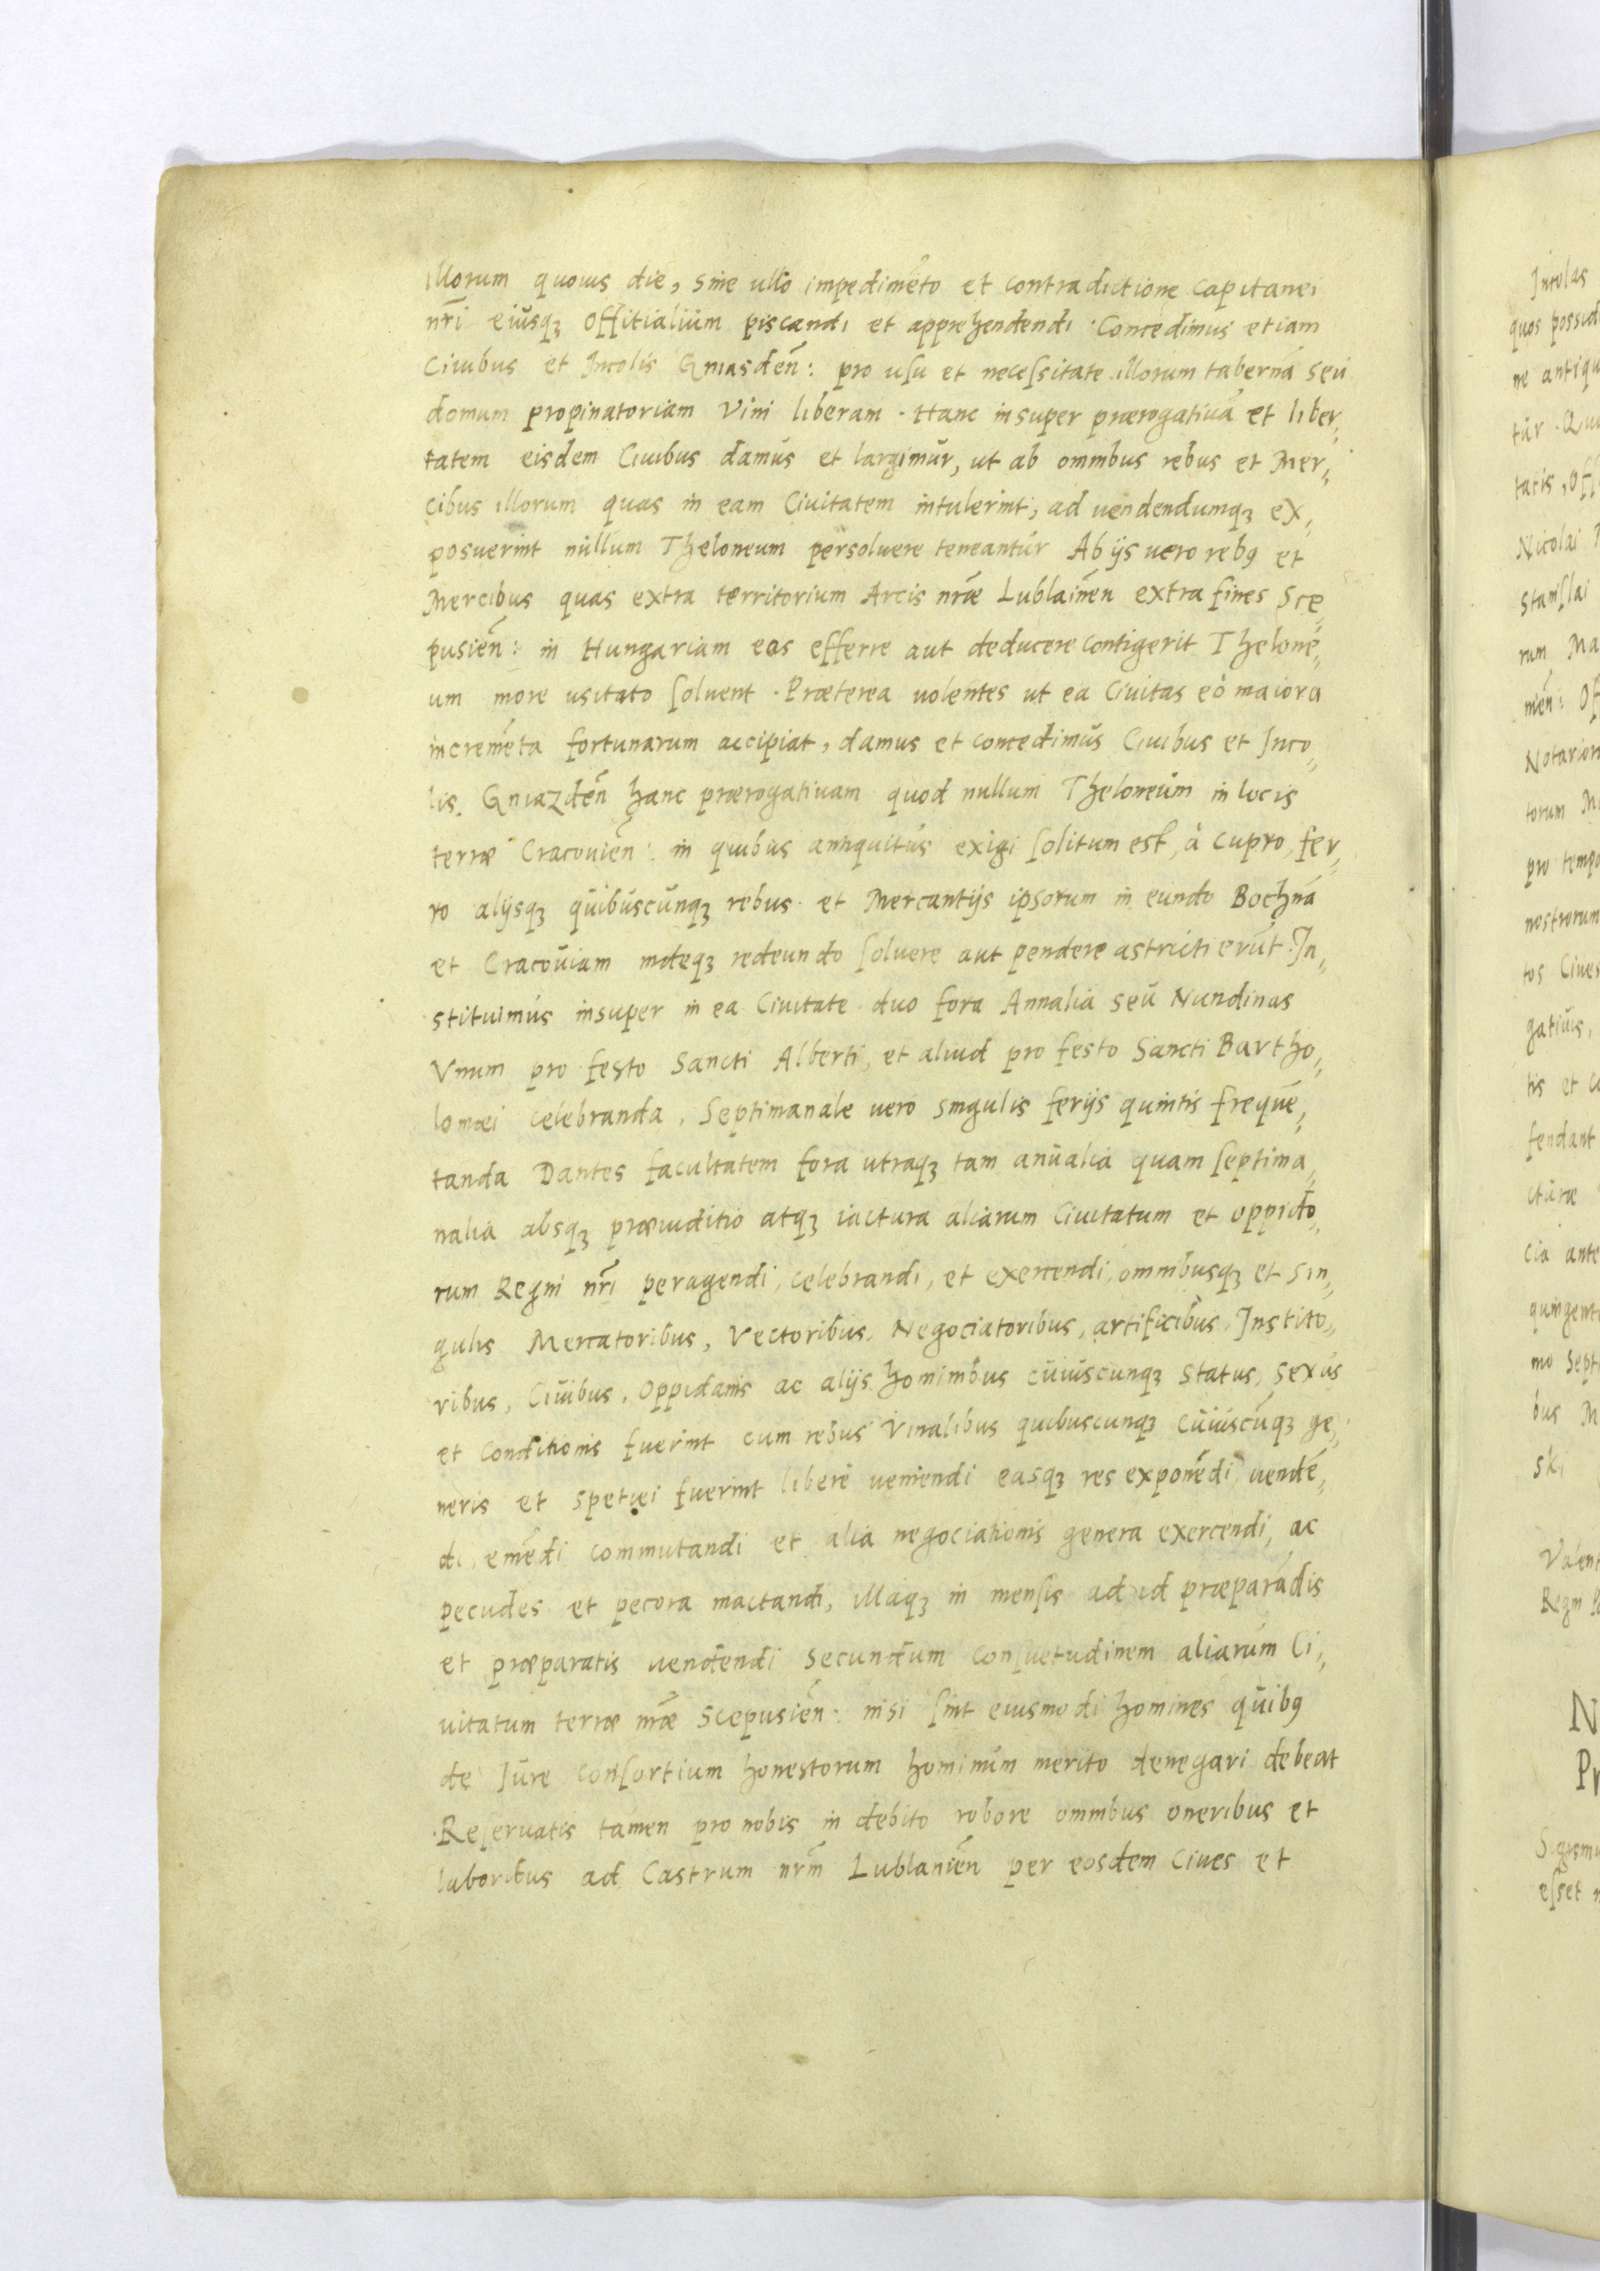 illorum quouis die, sine ullo impedimẽto et contradictione Capitanei
nr̃i eiusqȝ offitialium piscandi et apprehendendi. Concedimus etiam
Ciuibus et Incolis Gniasdeñ: pro uſu et neceſsitate illorum tabernã seu
domum propinatoriam Vini liberam. Hanc insuper prærogatiuã et liber„
tatem eisdem Ciuibus damus et largimur, ut ab omnibus rebus et Mer„
cibus illorum quas in eam Ciuitatem intulerint, ad uendendumqȝ ex„
posuerint nullum Theloneum persoluere teneantur Ab ijs uero rebꝯ et
Mercibus quas extra territorium Arcis nr̃æ Lublaineñ extra fines Sce„
pusieñ: in Hungariam eas efferre aut deducere contigerit Thelone„
um more usitato ſoluent. Præterea uolentes ut ea Ciuitas eò maiora
incremẽta fortunarum accipiat, damus et concedimus Ciuibus et Inco„
lis. Gniazdeñ hanc prærogatiuam quod nullum Theloneum in locis
terræ Cracouieñ: in quibus antiquitus exigi ſolitum est, à cupro, fer„
ro alijsqȝ quibuscunqȝ rebus et Mercantijs ipsorum in eundo Bochnã
et Cracouiam indeqȝ redeundo ſoluere aut pendere astricti erũt. In„
stituimus insuper in ea Ciuitate duo fora Annalia seu Nundinas
Vnum pro festo Sancti Alberti, et aliud pro festo Sancti Bartho„
lomæi celebranda, Septimanale uero singulis ferijs quintis frequẽ„
tanda Dantes facultatem fora utraqȝ tam anualia quam ſeptima„
nalia absqȝ præiuditio atqȝ iactura aliarum Ciuitatum et oppido„
rum Regni nr̃i peragendi, celebrandi, et exercendi, omnibusqȝ et sin„
gulis Mercatoribus, Vectoribus, Negociatoribus, artificibus, Instito„
ribus, Ciuibus, Oppidanis ac alijs hominibus cuiuscunqȝ status, sexus
et conditionis fuerint cum rebus Vinalibus quibuscunqȝ cuiuscũqȝ ge„
neris et spetiei fuerint liberè ueniendi easqȝ res exponẽdi uendẽ„
di, emẽdi commutandi et alia negociationis genera exercendi, ac
pecudes et pecora mactandi, illaqȝ in menſis ad id præparãdis
et præparatis uendendi secundum conſuetudinem aliarum Ci„
uitatum terræ nr̃æ Scepusieñ: nisi ſint eiusmodi homines quibꝯ
de Iure conſortium honestorum hominum merito denegari debeat
Reſeruatis tamen pro nobis in debito robore omnibus oneribus et
laboribus ad Castrum nr̃m Lublanieñ per eosdem Ciues et
Incolas
quos possid
ne antiqu
tur. Qui
tatis, off
Nicolai
Staniſlai
rum Ma
mẽn: Of
Notarior
torum M
pro tempo
nostrorum
tos Ciues
gatiuis,
tis et c
fendant
cturæ
cia ante
quingente
mo Sept
bus M
ski
Valent
Regni P
N
Pr
Sigismu
eſset n